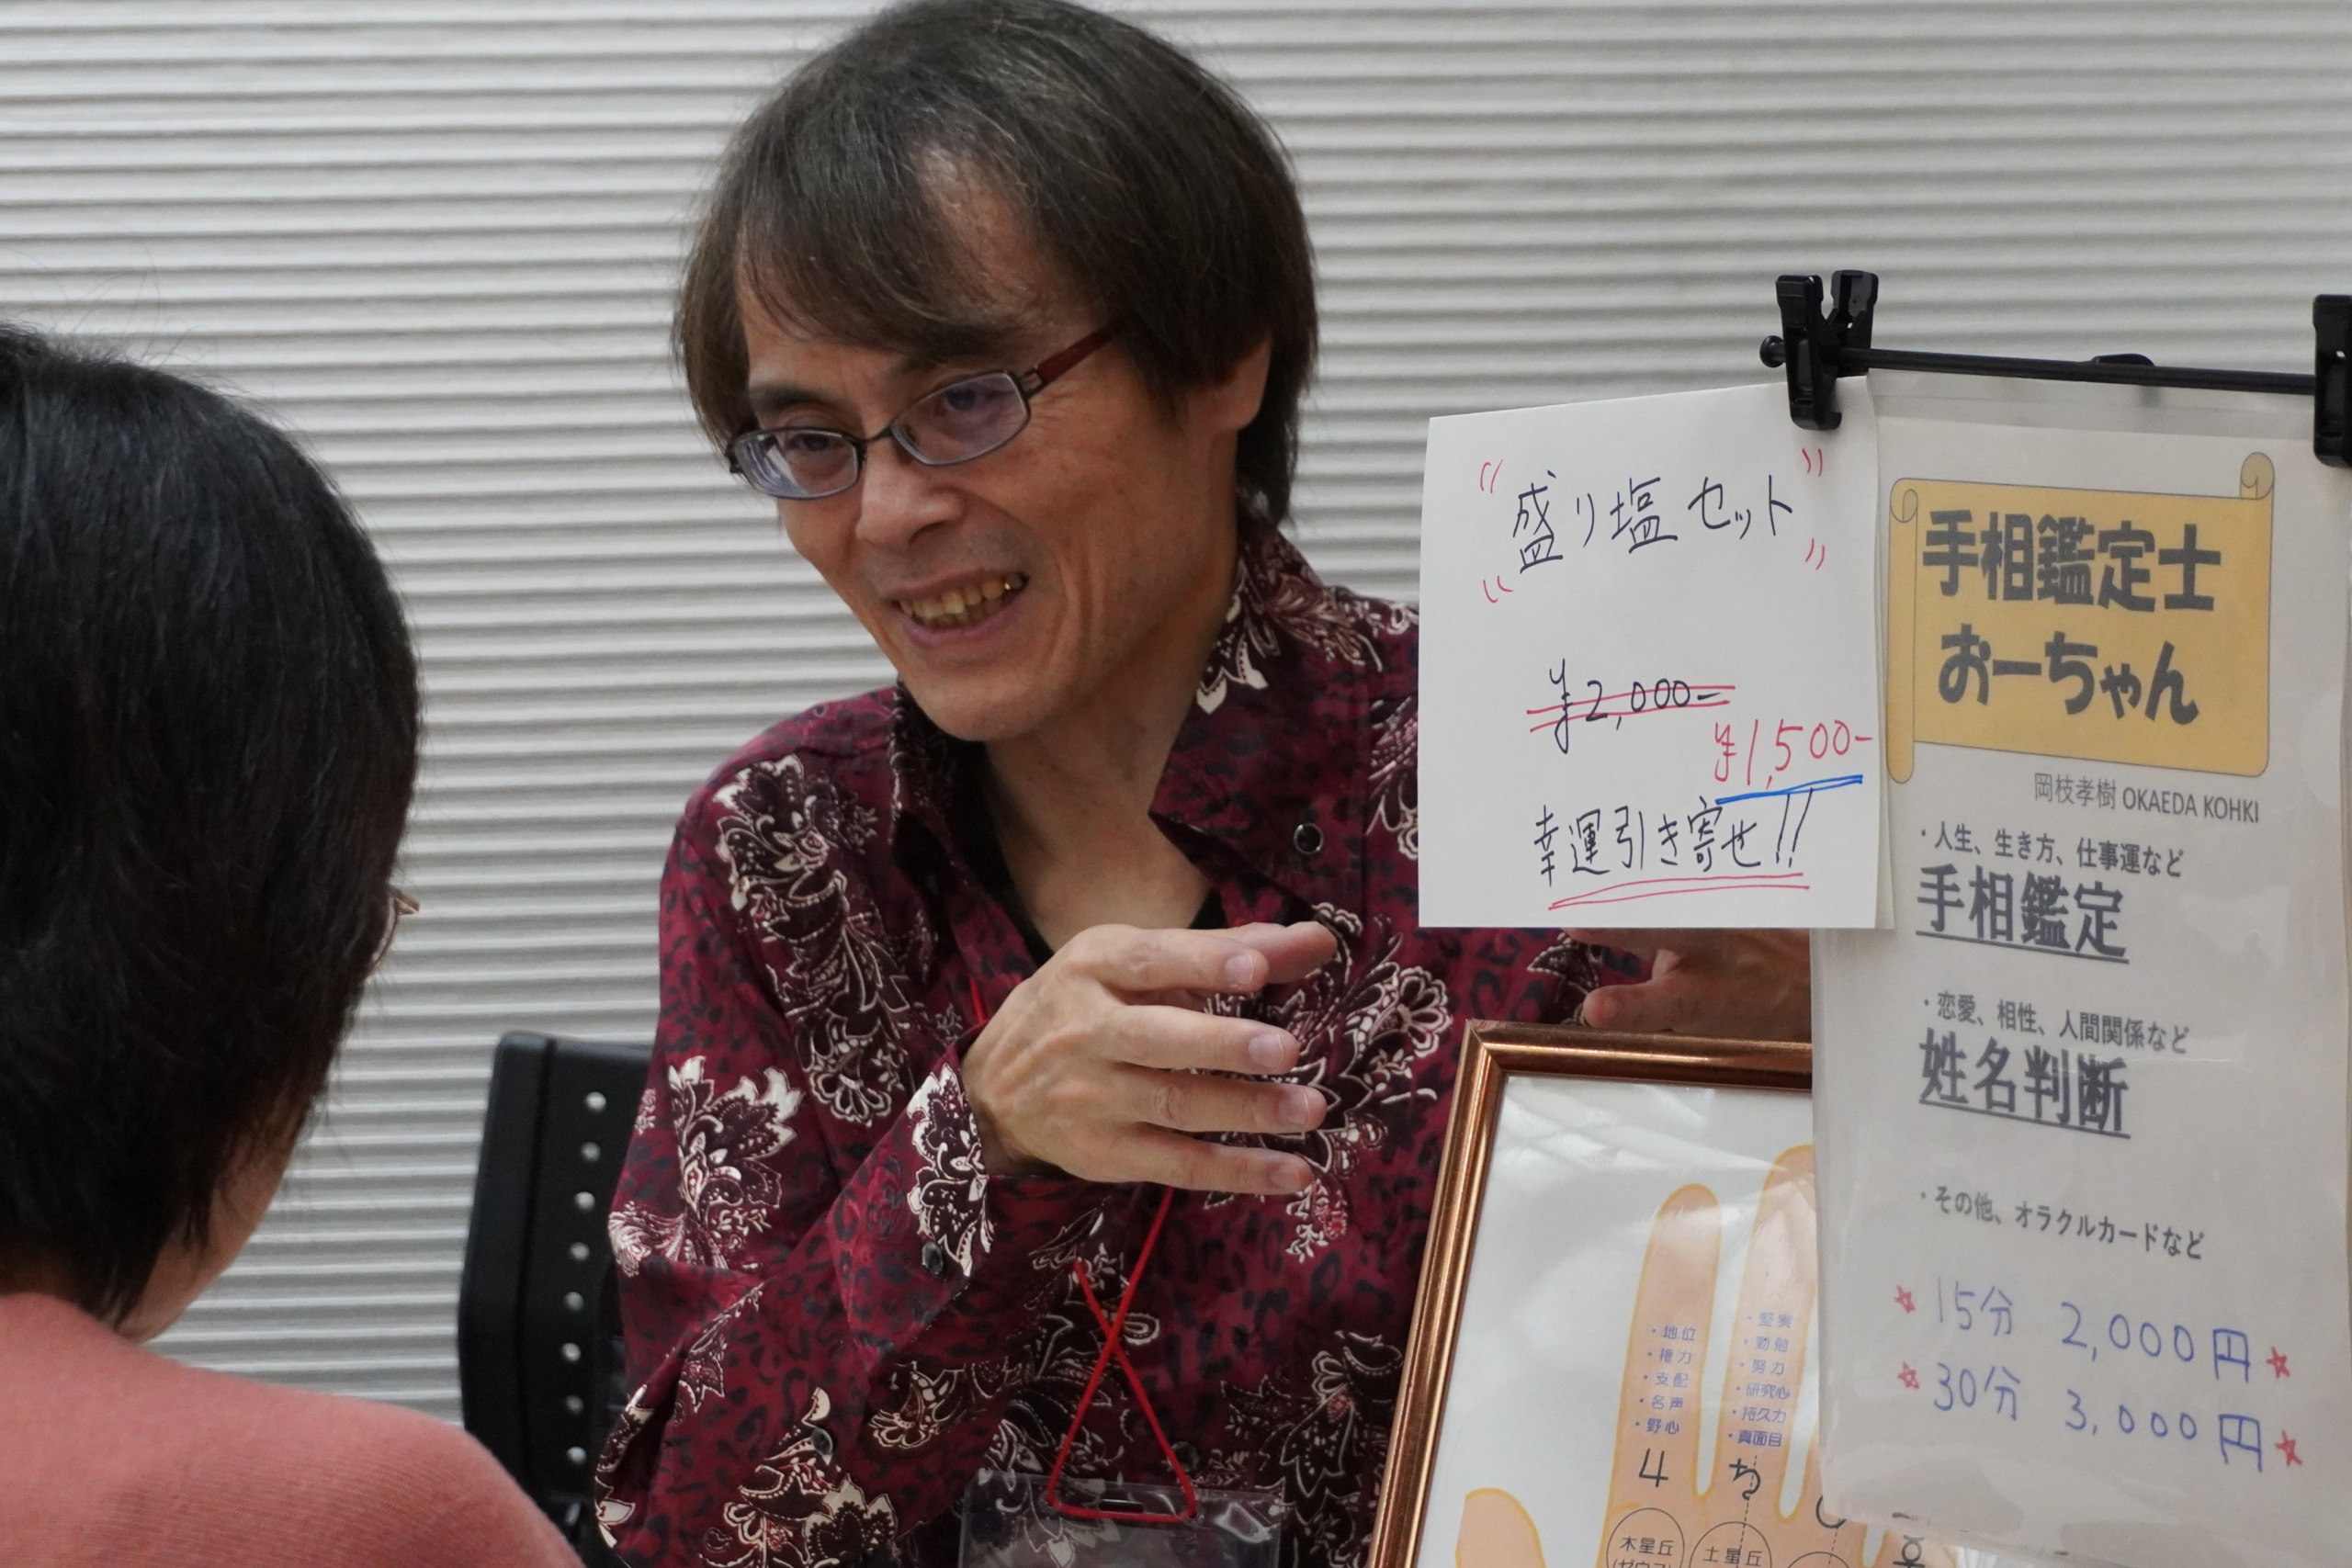 盛り塩セット
¥2,000-
¥1,500-
幸運引き寄せ!!
手相鑑定士
おーちゃん
岡枝孝樹 OKAEDA KOHKI
・人生、生き方、仕事運など
手相鑑定
・恋愛、相性、人間関係など
姓名判断
・その他、オラクルカードなど
☆ 15分 2,000円 ☆
☆ 30分 3,000円 ☆
・地位
・権力
・支配
・名声
・野心
・堅実
・勤勉
・努力
・研究心
・持久力
・真面目
木星丘
土星丘